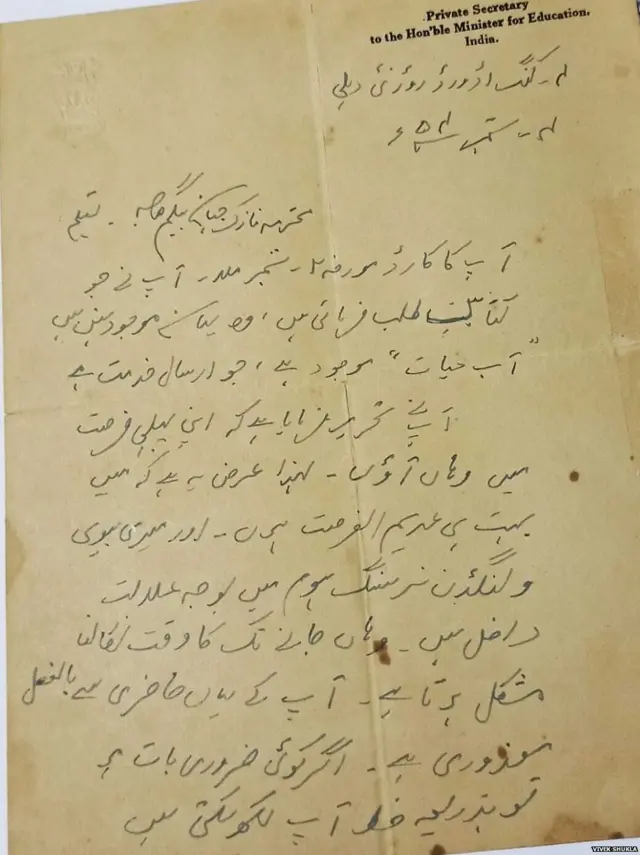 Private Secretary
to the Hon'ble Minister for Education,
India.
۴۔ کنگ اڈورڈ روڈ نئی دہلی
۴۔ ستمبر
محترمہ نازک جہاں بیگم صاحبہ۔ تسلیم
آپ کا کارڈ مورخہ ۲۔ ستمبر ملا۔ آپ نے جو
کتابیں طلب فرمائی ہیں، وہ یہاں موجود نہیں ہیں
"آب حیات" موجود ہے، جو ارسال خدمت ہے
آپ نے تحریر فرمایا ہے کہ اپنی پہلی فرصت
میں وہاں آؤں۔ لہذا عرض یہ ہے کہ میں
بہت ہی عدیم الفرصت ہوں۔ اور میری بیوی
ولنگڈن نرسنگ ہوم میں بوجہ علالت
داخل ہیں۔ وہاں جانے تک کا وقت نکالنا
مشکل ہوتا ہے۔ آپ کے یہاں حاضری سے بالفعل
معذوری ہے۔ اگر کوئی ضروری بات ہو
تو بذریعہ خط آپ لکھ سکتی ہیں
VIVEK SHUKLA